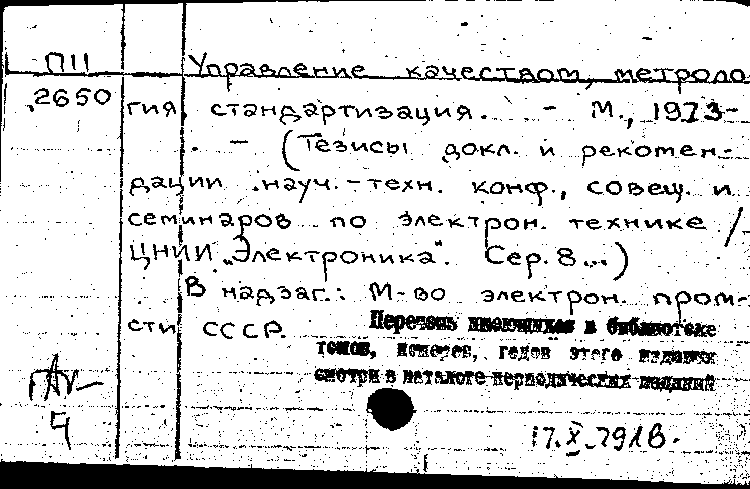 П11
2650
Управление качеством, метроло
гия, стандартизация. - М., 1973-
. - (Тезисы докл. и рекомен-
дации науч.-техн. конф., совещ. и
семинаров по электрон. технике /
ЦНИИ „Электроника“. Сер. 8...)
В надзаг.: М-во электрон. пром-
сти СССР.
Перечень имеющихся в библиотеке
томов, номеров, годов этого издания
смотри в каталоге периодических изданий
17.X.